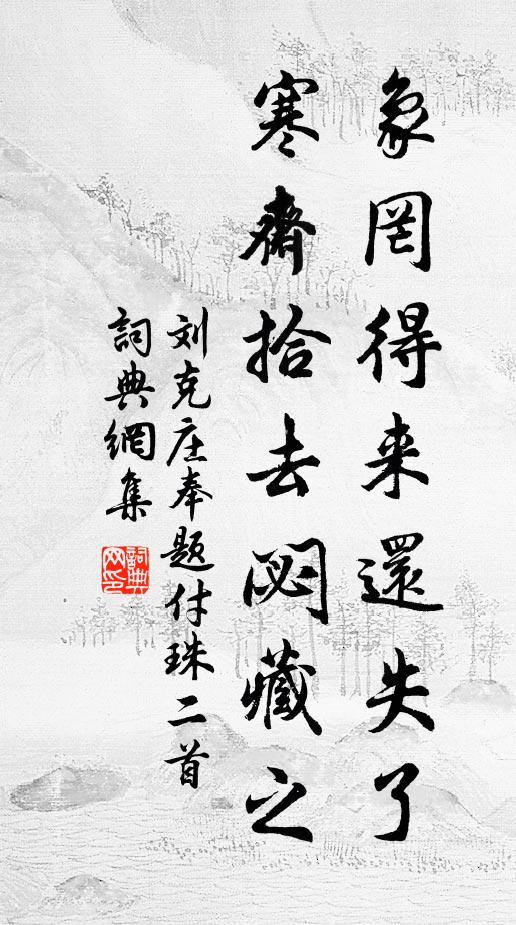 象罔得来還失了
寒齋拾去閟藏之
刘克庄奉題付珠二首
詞典網集
詞典网印